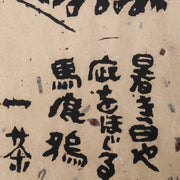 暑き日や
庇をほじる
馬鹿鴉
一茶